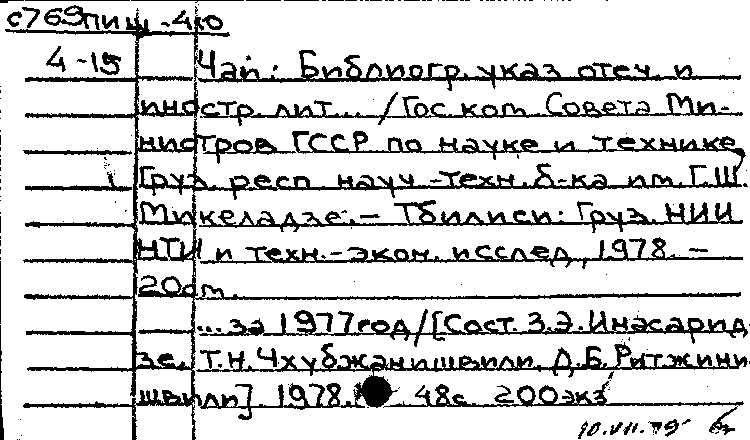 с769пищ-4ю
4-15 Чай: Библиогр. указ. отеч. и
иностр. лит... /Гос. ком. Совета Ми-
нистров ГССР по науке и технике,
Груз. респ. науч.-техн. б-ка им. Г.Ш.
Микеладзе. - Тбилиси: Груз. НИИ
НТИ и техн.-экон. исслед., 1978. -
20см.
...за 1977год/[Сост. З.Э.Инасарид
зе, Т.Н.Чхубжанишвили, Д.Б.Ритжини
швили] 1978. 48с 200экз
10.VII.79